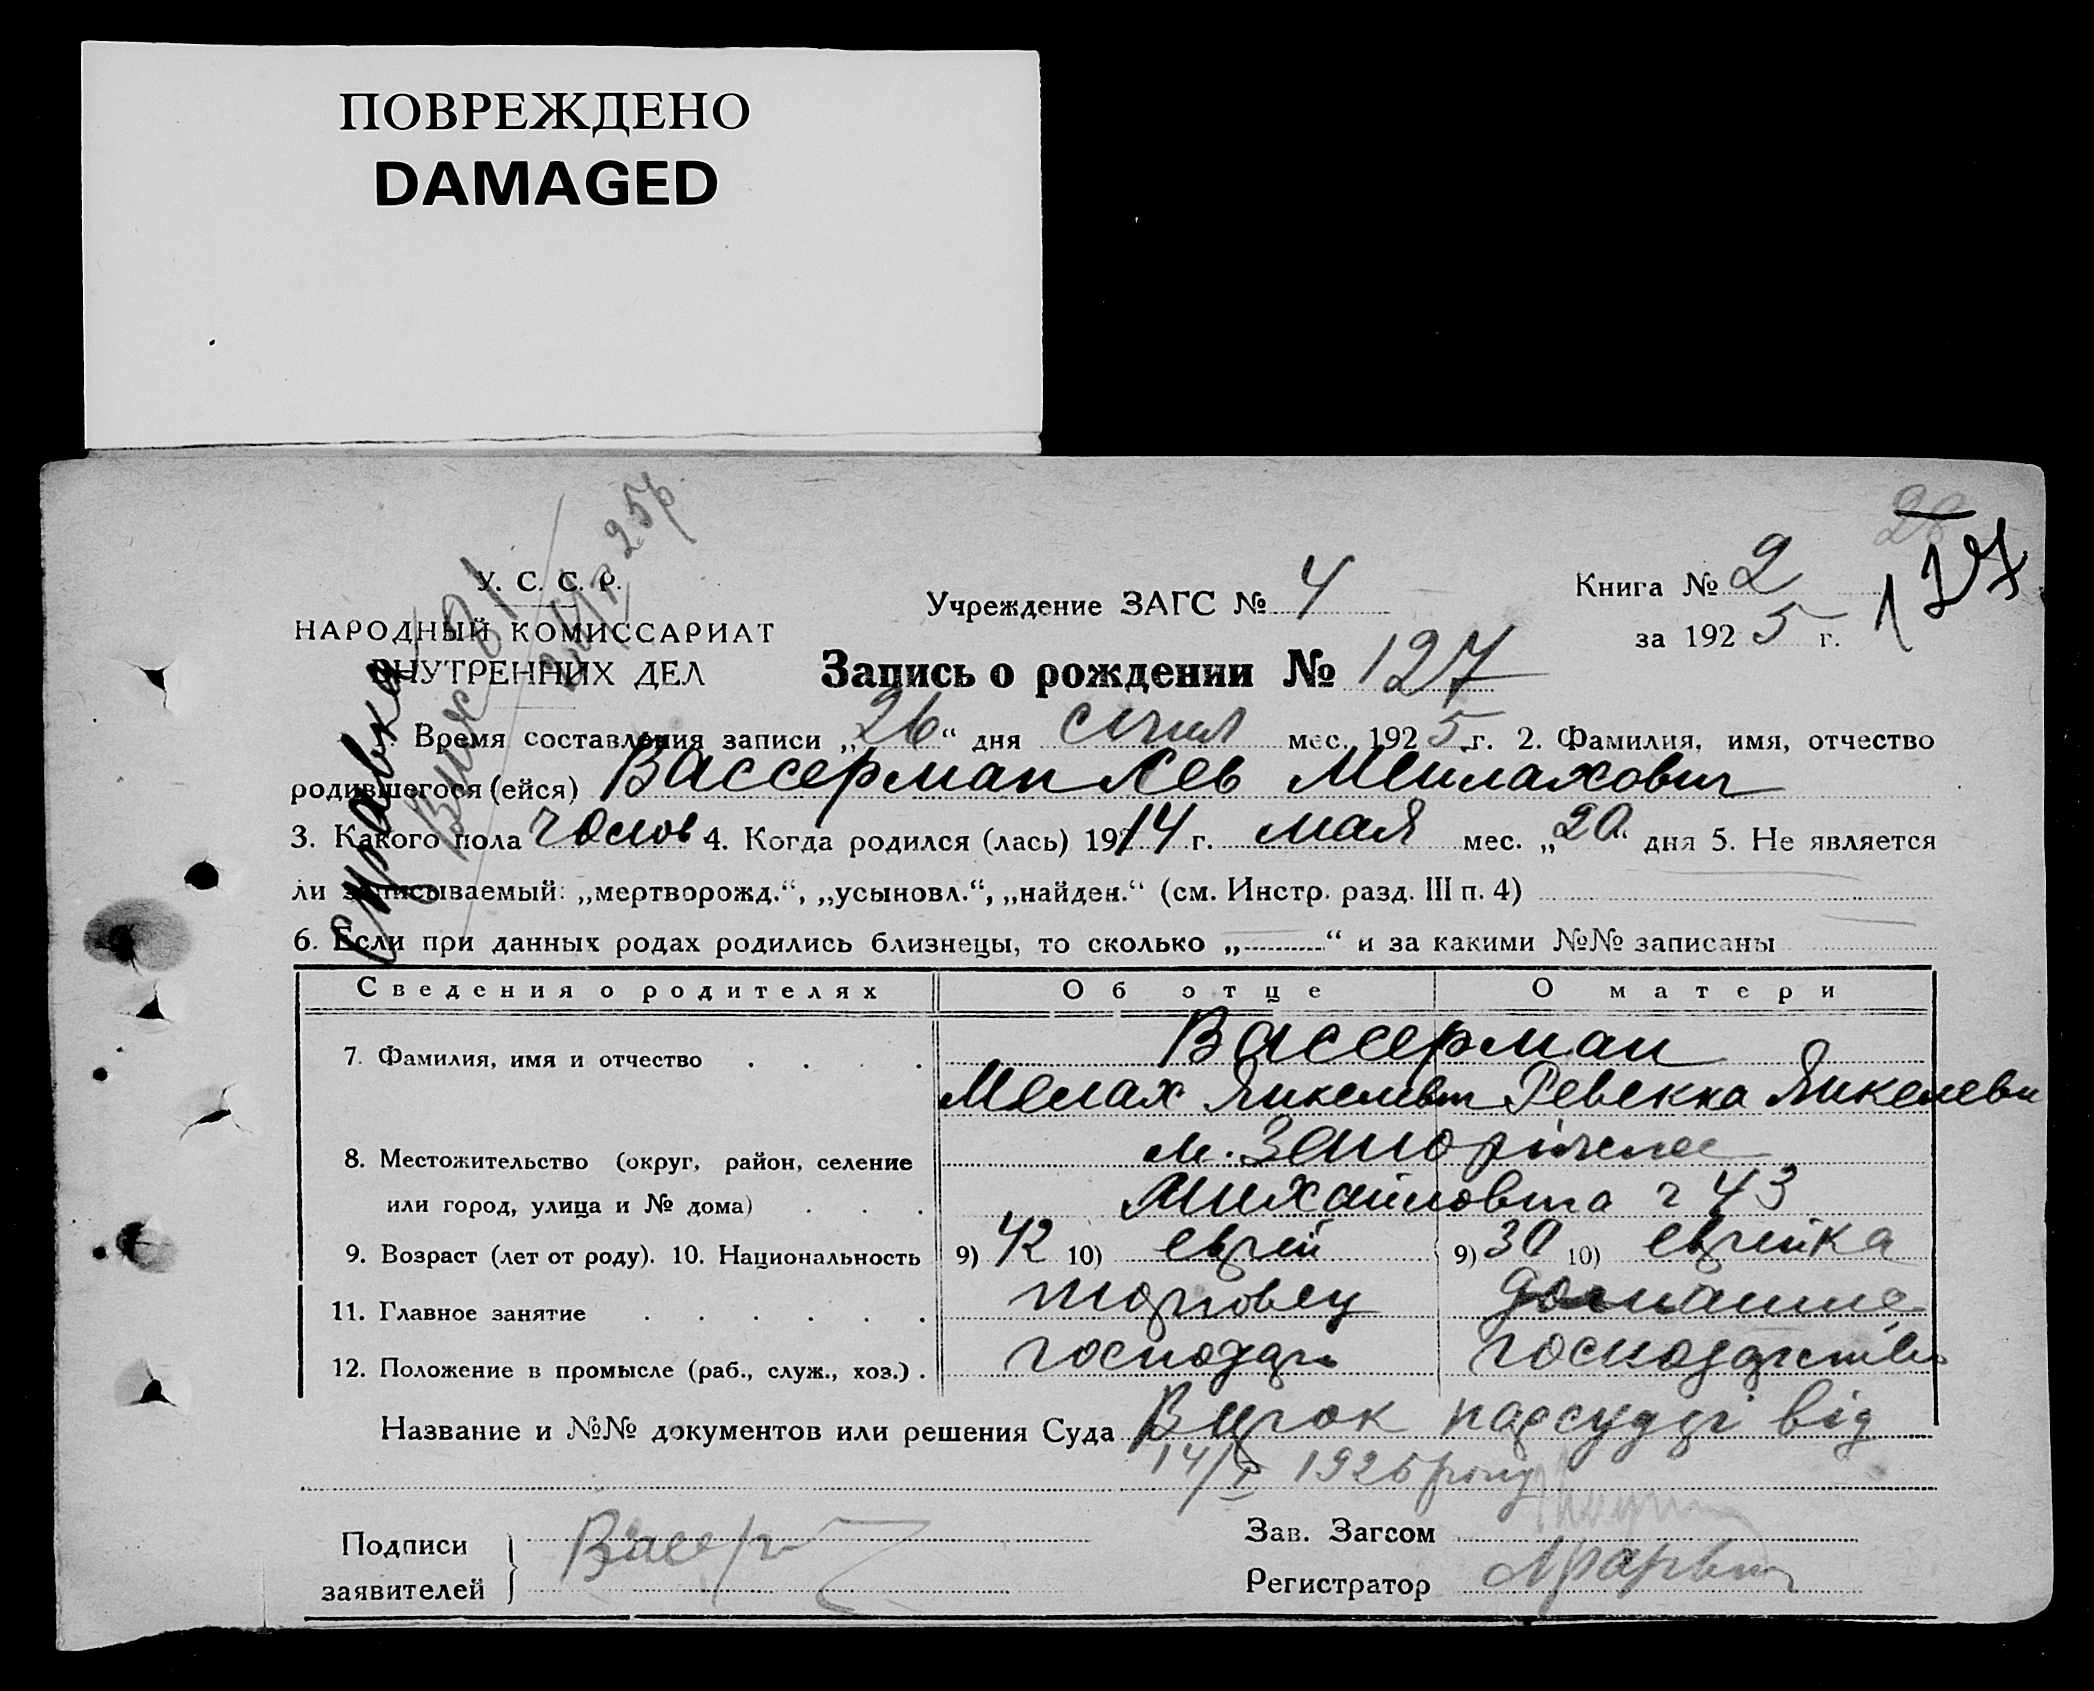 ПОВРЕЖДЕНО
DAMAGED
28
127
У. С. С. Р.
НАРОДНЫЙ КОМИССАРИАТ
ВНУТРЕННИХ ДЕЛ
Учреждение ЗАГС № 4
Книга № 2
за 1925 г.
Запись о рождении № 127
Справка
25р.
1. Время составления записи „26“ дня січня мес. 1925 г. 2. Фамилия, имя, отчество
родившегося (ейся) Вассерман Лев Мейлахович
3. Какого пола чолов 4. Когда родился (лась) 1914 г. мая мес. „20“ дня 5. Не является
ли записываемый: „мертворожд.“, „усыновл.“, „найден.“ (см. Инстр. разд. III п. 4)
6. Если при данных родах родились близнецы, то сколько „ “ и за какими №№ записаны
Сведения о родителях Об отце О матери
7. Фамилия, имя и отчество Вассерман
Мелах Янкелевич Ревекка Янкелевн
8. Местожительство (округ, район, селение м. Запоріжжє
или город, улица и № дома) Михайловська 43
9. Возраст (лет от роду). 10. Национальность 9) 42 10) еврей 9) 30 10) еврейка
11. Главное занятие торговец домашнє
12. Положение в промысле (раб., служ., хоз.) господарь господарство
Название и №№ документов или решения Суда Виток нарсудді від
14/I 1925 року
Подписи
заявителей
Васер
Зав. Загсом
Регистратор